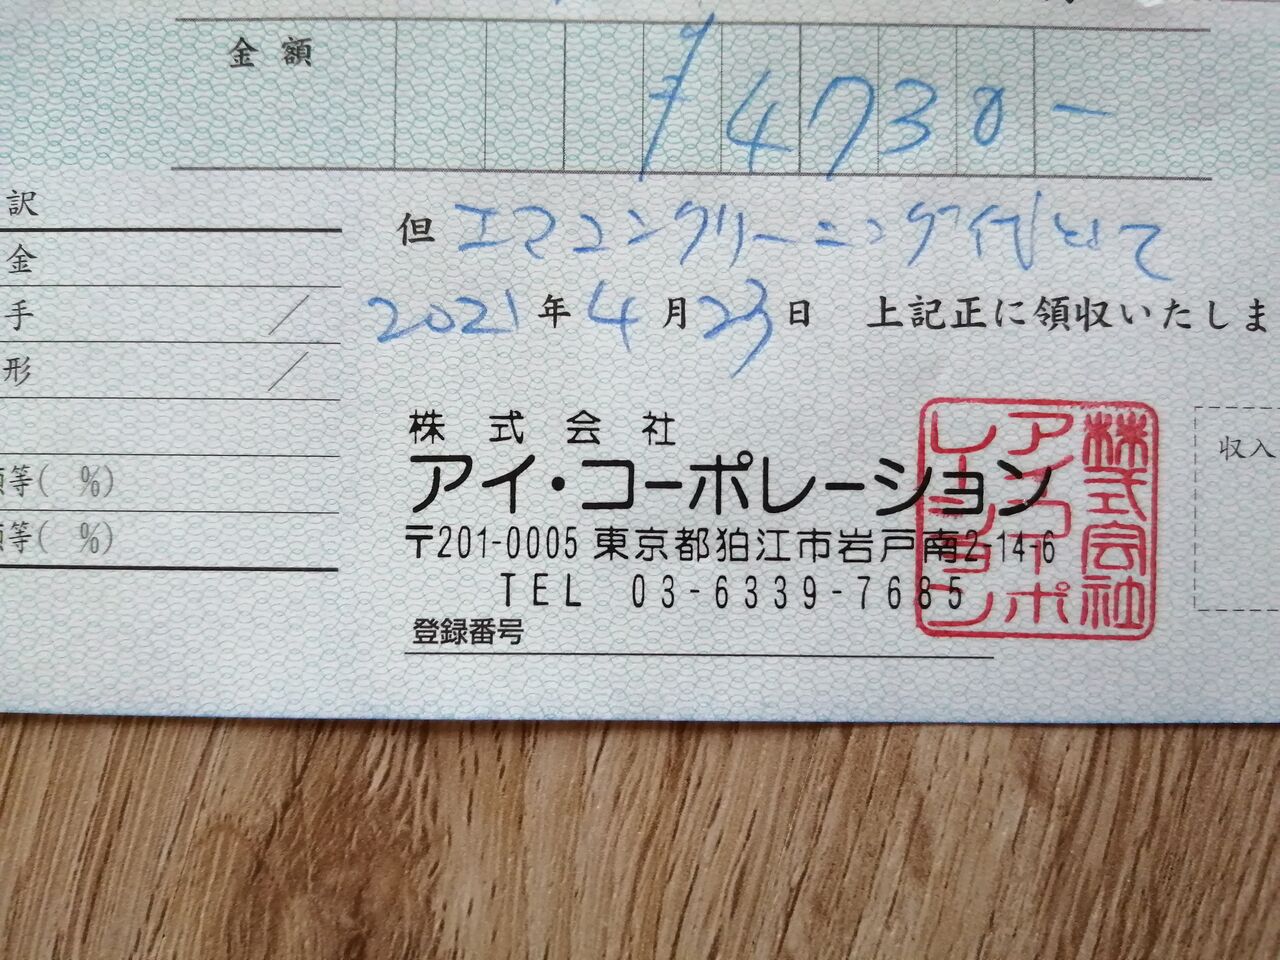 金額 ¥4730-
訳
金
手
形
等( %)
等( %)
但 エアコンクリーニング代として
2021年4月23日 上記正に領収いたしま
株式会社
アイ・コーポレーション
〒201-0005 東京都狛江市岩戸南2-14-6
TEL 03-6339-7685
登録番号
株式会社
アイコーポ
レーション
収入